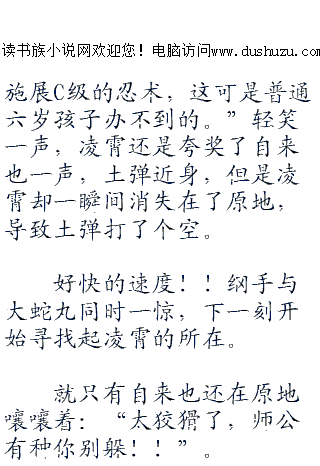 读书族小说网欢迎您！电脑访问www.dushuzu.com
施展C级的忍术，这可是普通
六岁孩子办不到的。”轻笑
一声，凌霄还是夸奖了自来
也一声，土弹近身，但是凌
霄却一瞬间消失在了原地，
导致土弹打了个空。
好快的速度！！纲手与
大蛇丸同时一惊，下一刻开
始寻找起凌霄的所在。
就只有自来也还在原地
嚷嚷着：“太狡猾了，师公
有种你别躲！！”。